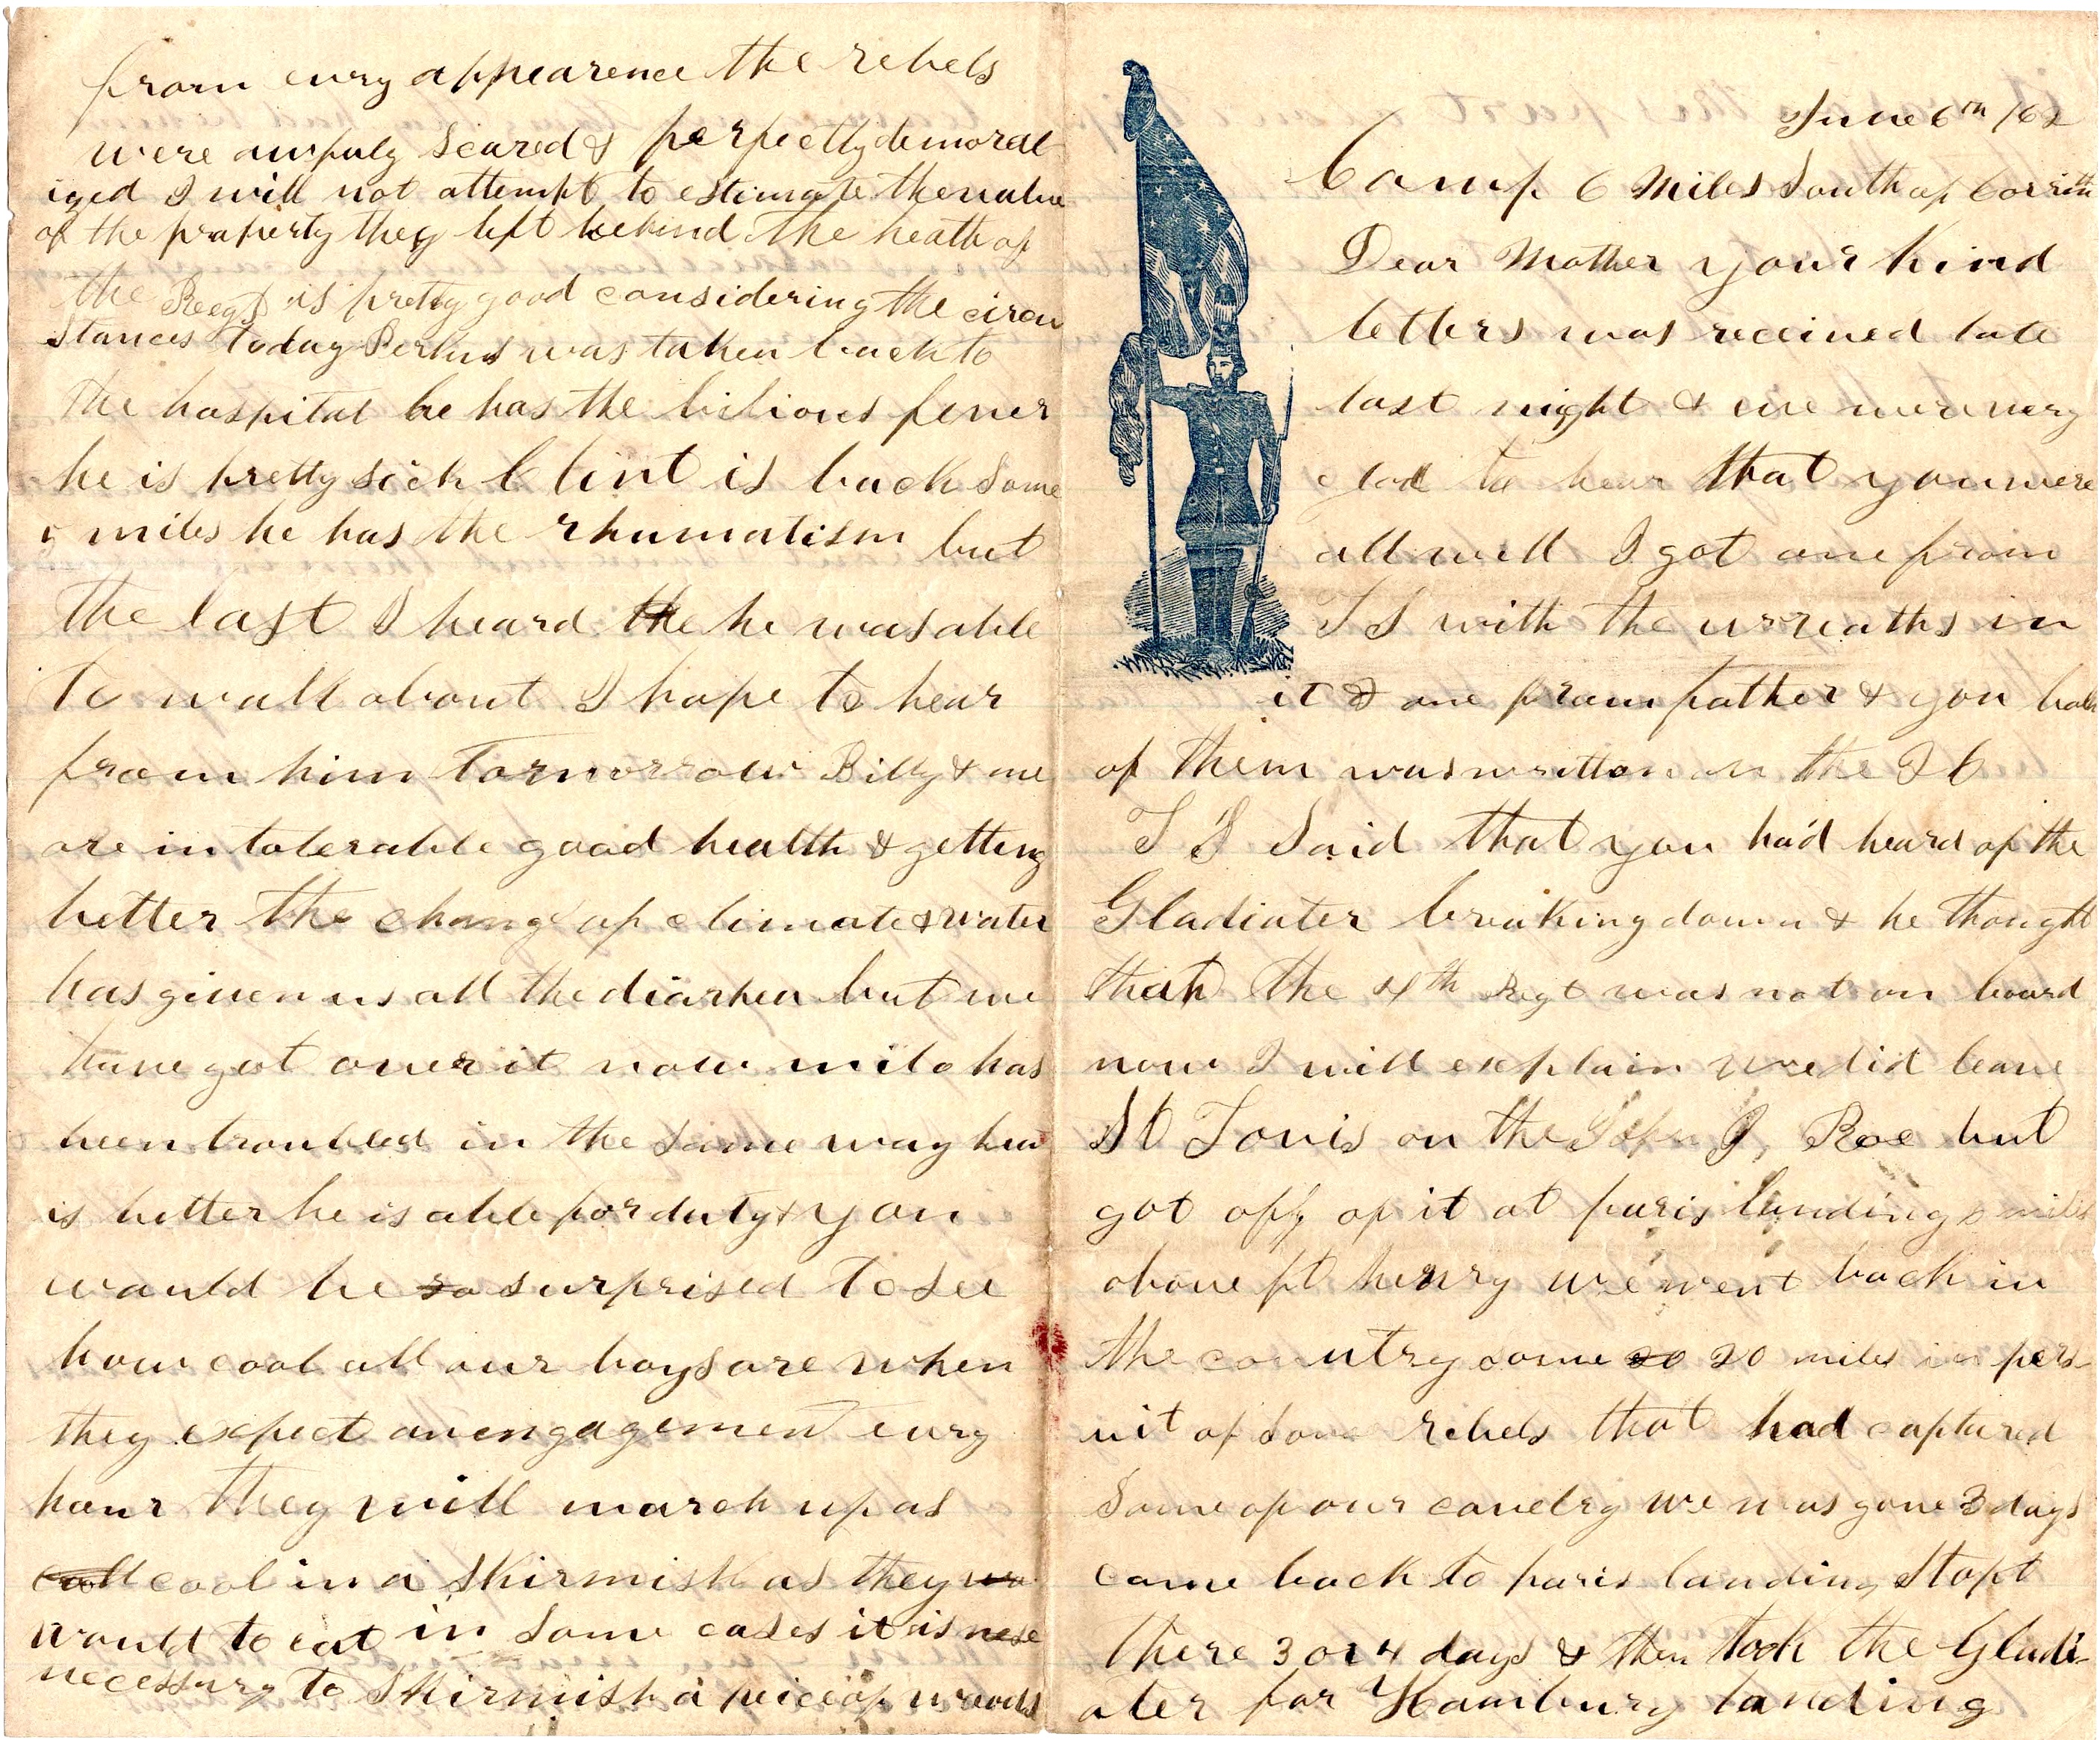 June 6th /62
Camp 6 Miles South of Corinth
Dear Mother your kind
letters was received late
last night & we were very
glad to hear that you were
all well I got one from
T S with the wreaths in
it & one from father & you both
of them was written on the 26
T S Said that you had heard of the
Gladiater breaking down & he thought
that the 4th Regt was not on board
now I will explain we did leave
St Louis on the John J, Roe but
got off of it at paris landing miles
above ft henry we went back in
the country some 20 miles in pers
uit of some rebels that had captured
Some of our cavelry we was gone 3 days
came back to paris landing Stopt
there 3 or 4 days & then took the Gladi-
ater for Hamburg landing
from evry appearence the rebels
were awfuly scared & perfectly demoral
ized I will not attempt to estimate the value
of the property they left behind The heath of
the Regt is pretty good considering the circu
stances today Perkins was taken back to
the hospital he has the bilious fever
he is pretty sick Clint is back Some
5 miles he has the rhumatism but
the last I heard the he was able
to walk about I hope to hear
from him tomorrow Billy & me
are in tolerable good health & getting
better the chang of climate & water
has given us all the diarhea but we
have got over it now milo has
been troubled in the same way but
is better he is able for duty & you
would be so surprised to see
how cool all our boys are when
they expect an engagement evry
hour they will march up as
cool in a Skirmish as they
would to eat in some cases it is nese
necessary to Skirmish a peice of woods